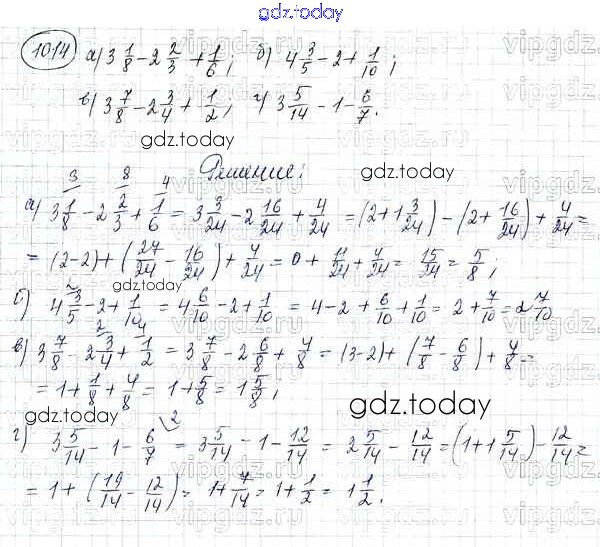 gdz.today
1014 а) 3 1/8 - 2 2/3 + 1/6; б) 4 3/5 - 2 + 1/10;
в) 3 7/8 - 2 3/4 + 1/2; г) 3 5/14 - 1 - 6/7.
gdz.today
gdz.today
Решение:
3 8 4
а) 3 1/8 - 2 2/3 + 1/6 = 3 3/24 - 2 16/24 + 4/24 = (2 + 1 3/24) - (2 + 16/24) + 4/24 =
= (2-2) + (27/24 - 16/24) + 4/24 = 0 + 11/24 + 4/24 = 15/24 = 5/8;
gdz.today
2
б) 4 3/5 - 2 + 1/10 = 4 6/10 - 2 + 1/10 = 4 - 2 + 6/10 + 1/10 = 2 + 7/10 = 2 7/10
2 4
в) 3 7/8 - 2 3/4 + 1/2 = 3 7/8 - 2 6/8 + 4/8 = (3-2) + (7/8 - 6/8) + 4/8 =
= 1 + 1/8 + 4/8 = 1 + 5/8 = 1 5/8;
gdz.today
gdz.today
2
г) 3 5/14 - 1 - 6/7 = 3 5/14 - 1 - 12/14 = 2 5/14 - 12/14 = (1 + 1 5/14) - 12/14 =
= 1 + (19/14 - 12/14) = 1 + 7/14 = 1 + 1/2 = 1 1/2.
gdz.today